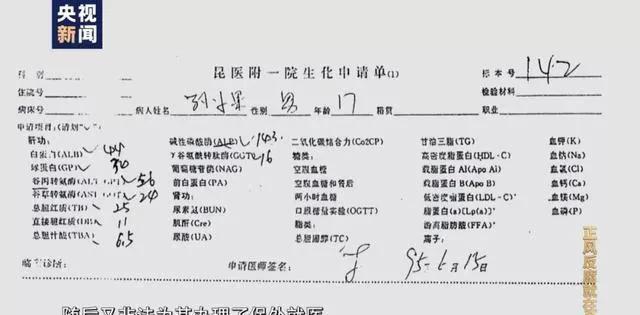 央视
新闻
昆医附一院生化申请单(1)
科 别
标 本 号 142
住院号
检验材料
病床号 病人姓名 孙小果 性别 男 年龄 17 籍贯 职业
申请项目: (请划“√”)
肝功 碱性磷酸酶(ALP) 143 二氧化碳结合力(Co2CP) 甘油三酯(TG) 血钾(K)
白蛋白(ALB) γ谷氨酰转肽酶(GGT) 16 糖类: 高密度脂蛋白(HDL-C) 血钠(Na)
球蛋白(GP) 30 葡萄糖苷酶(NAG) 空腹血糖 载脂蛋白AI(Apo AI) 血氯(Cl)
谷丙转氨酶 56 前白蛋白(PA) 空腹血糖和餐后 载脂蛋白B(Apo B) 血钙(Ca)
谷草转氨酶 24 肾功: 两小时血糖 低密度脂蛋白(LDL-C) 血镁(Mg)
总胆红质(TB) 25 尿素氮(BUN) 口服糖量实验(OGTT) 脂蛋白(a)[Lp(a)] 血磷(P)
直接胆红质 11 肌酐(Cre) 脂类: 游离脂肪酸(FFA)
总胆汁酸(TBA) 6.5 尿酸(UA) 总胆固醇(TC) 离子:
临床诊断: 申请医师签名: 95-6月15日
正风反腐就在
随后又非法为其办理了保外就医